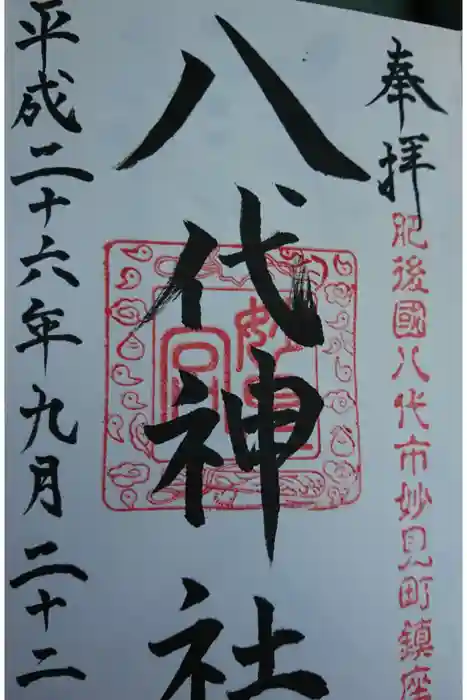 奉拝
肥後國八代市妙見町鎮座
八代神社
妙見宮
平成二十六年九月二十二